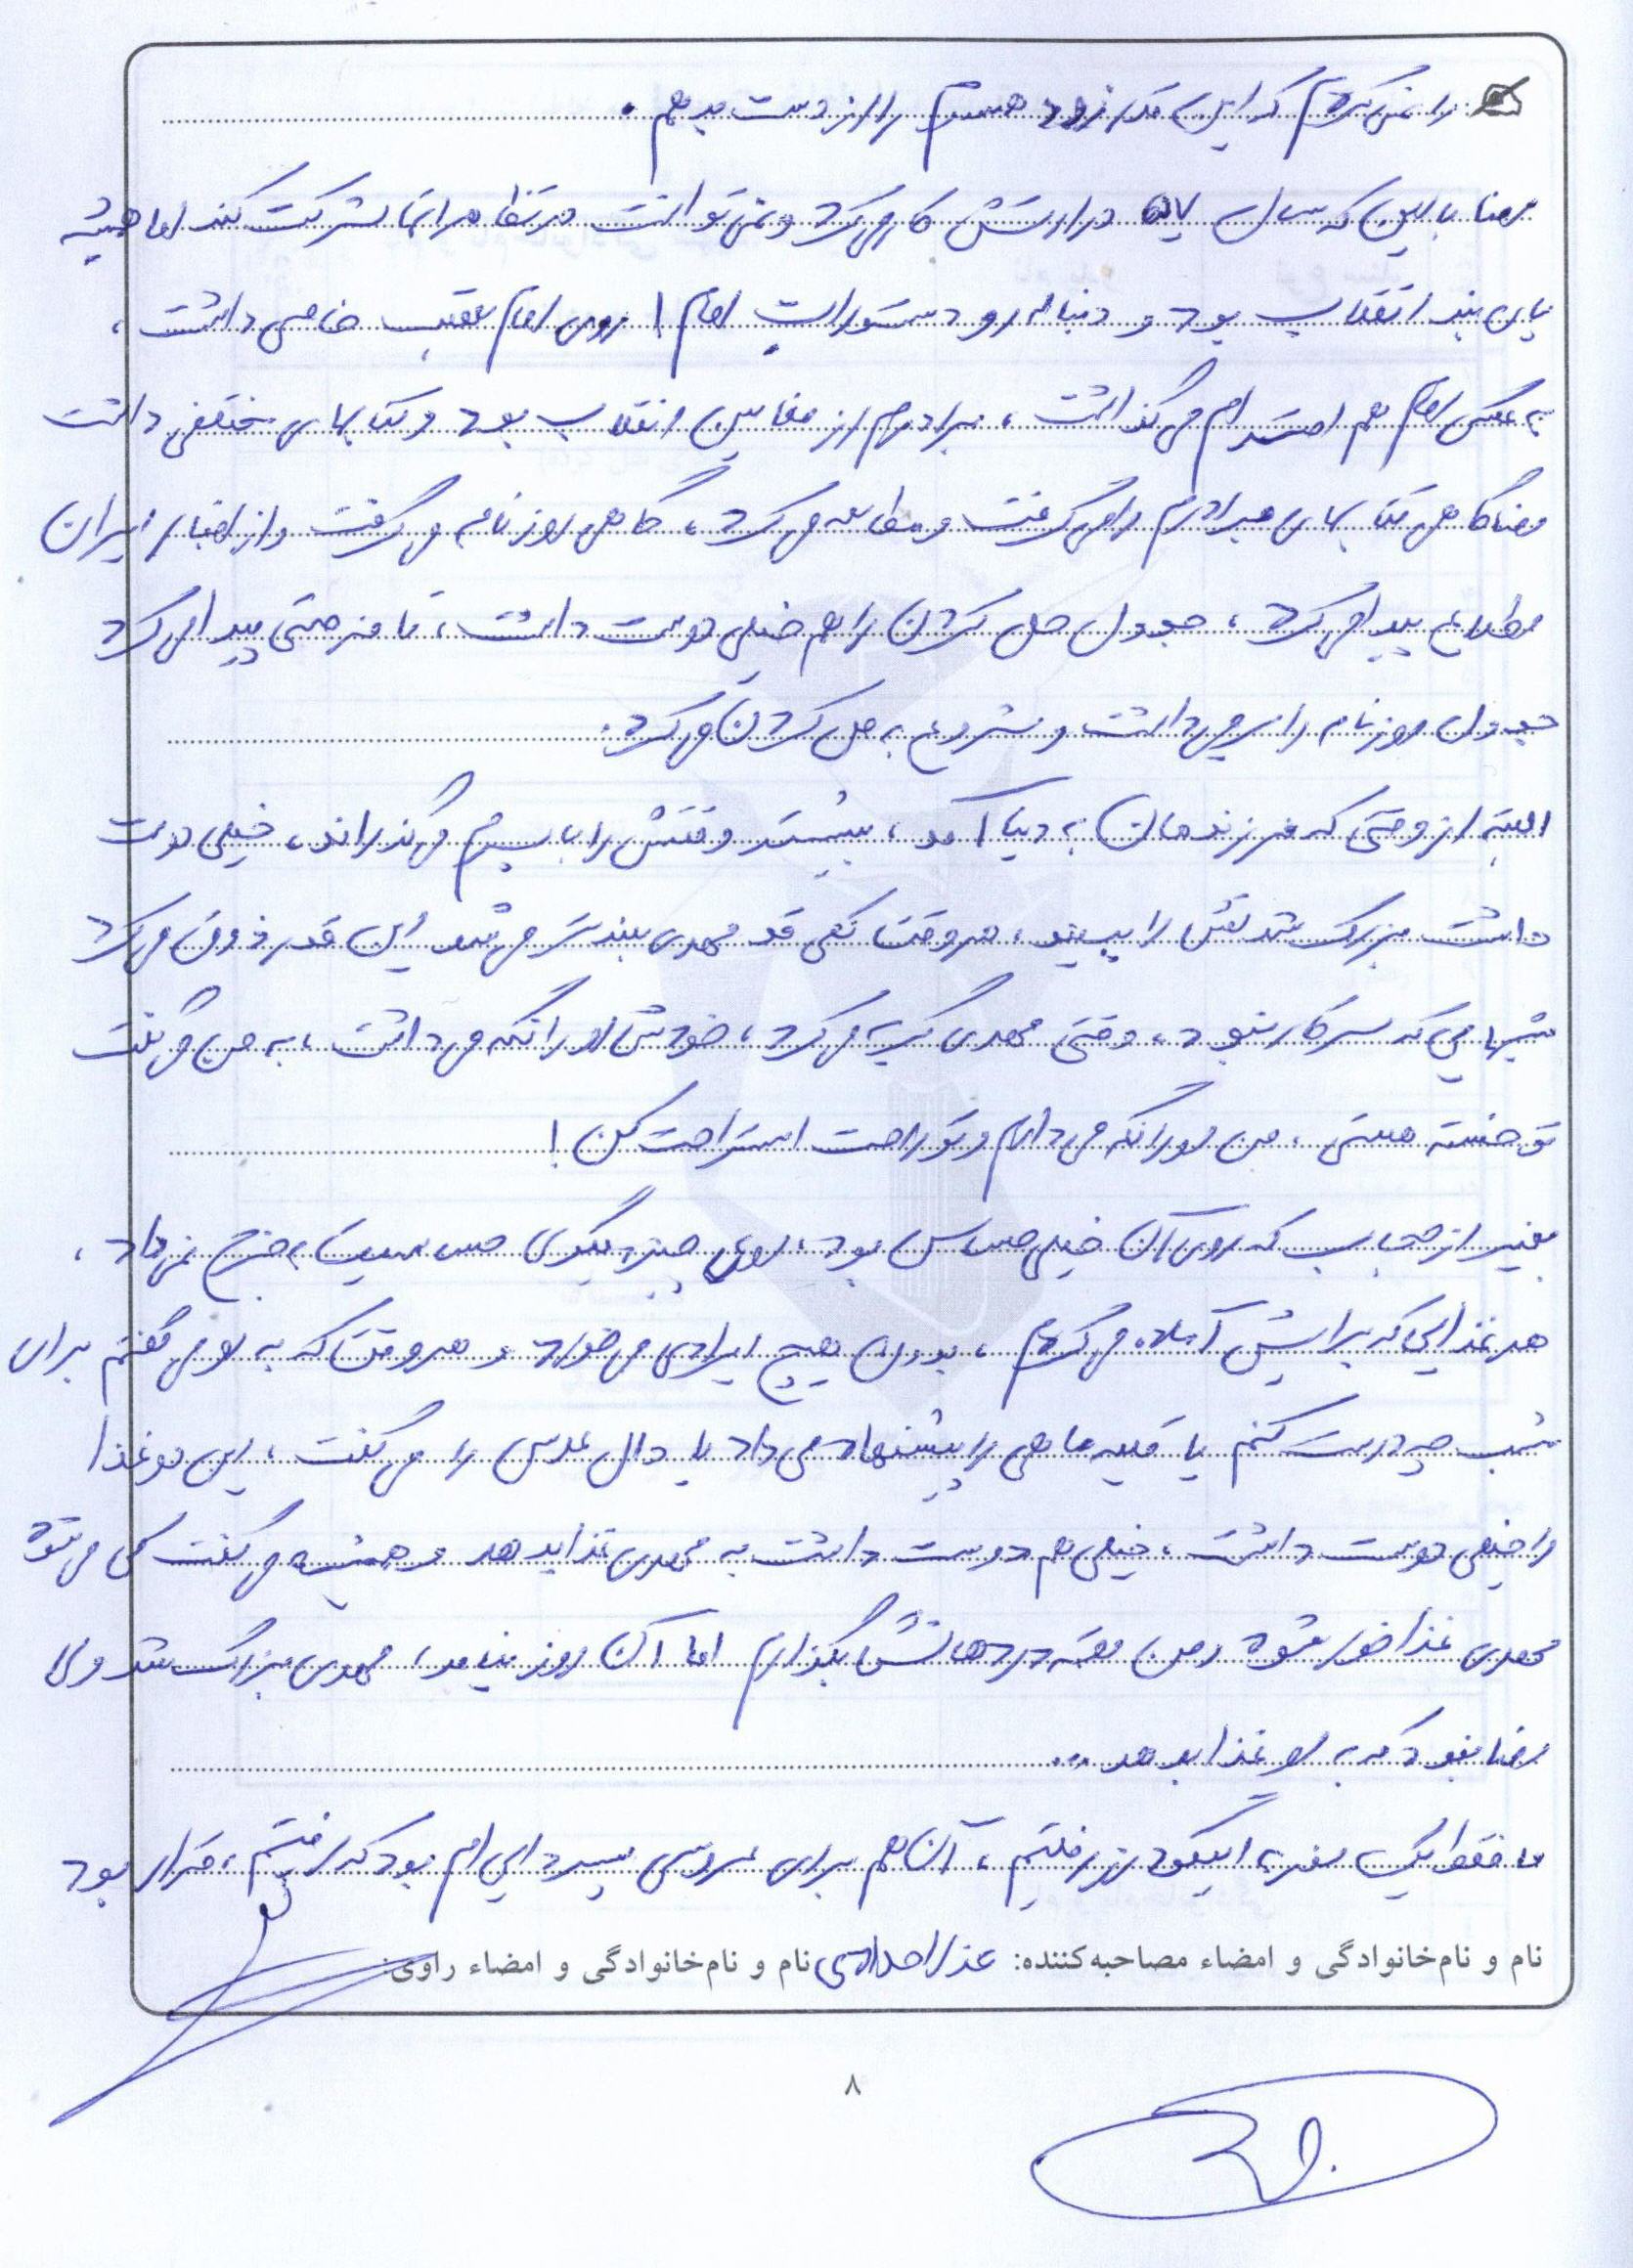 را نمی‌کردم که این قدر زود همسرم را از دست بدهم.
رضا با این که سال ۵۷ در ارتش کار می‌کرد و نمی‌توانست در تظاهراتها شرکت کند اما همیشه
پای بند انقلاب بود و دنباله‌رو دستورات امام! روی امام تعصب خاصی داشت،
به عکس امام هم احترام می‌گذاشت، برادرم از فعالین انقلاب بود و کتابهای مختلفی داشت
رضا گاهی کتابهای برادرم را می‌گرفت و مطالعه می‌کرد، گاهی روزنامه می‌گرفت و از اخبار ایران
اطلاع پیدا می‌کرد، جدول حل کردن را هم خیلی دوست داشت، تا فرصتی پیدا می‌کرد
جدول روزنامه را برمی‌داشت و شروع به حل کردن می‌کرد.
البته از وقتی که فرزندمان به دنیا آمد، بیشتر وقتش را با پسرم می‌گذراند، خیلی دوست
داشت بزرگ شدنش را ببیند، هر وقت کمی قد مهدی بلندتر می‌شد این قدر ذوق می‌کرد
شبهایی که سر کار نبود، وقتی مهدی گریه می‌کرد، خودش او را نگه می‌داشت، به من می‌گفت
تو خسته هستی، من او را نگه می‌دارم و تو راحت استراحت کن!
بغیر از حجاب که روی آن خیلی حساس بود، روی چیز دیگری حساسیت به خرج نمی‌داد،
هر غذایی که برایش آماده می‌کردم، بدون هیچ ایرادی می‌خورد و هر وقت که به او می‌گفتم برای
شب چه درست کنم یا قلیه ماهی را پیشنهاد می‌داد یا دال عدس را می‌گفت، این دو غذا
را خیلی دوست داشت، خیلی هم دوست داشت به مهدی غذا بدهد و همیشه می‌گفت کی می‌شود
مهدی غذاخور بشود و من لقمه در دهانش بگذارم اما آن روز نیامد، مهدی بزرگ شد ولی
رضا نبود که به او غذا بدهد ...
ما فقط یک سفر به ایگودرز رفتیم، آن هم برای عروسی پسردایی ام بود که رفتیم، قرار بود
نام و نام‌خانوادگی و امضاء مصاحبه‌کننده: عذرا نام و نام‌خانوادگی و امضاء راوی:
۸